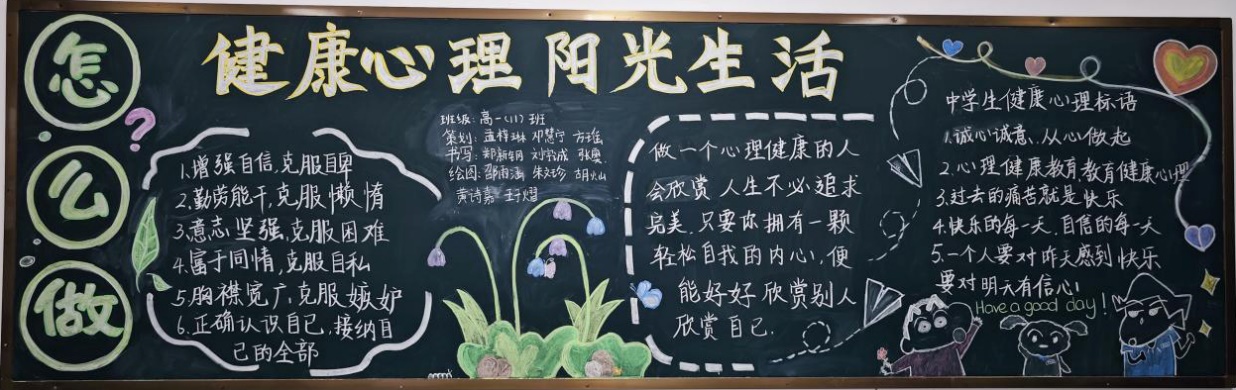 怎么做
?
健康心理 阳光生活
班级:高一(11)班
策划:孟梓琳 邓慧宁 方瑶
书写:郑新钥 刘宇成 张奥
绘图:邵雨涵 朱文珍 胡灿
黄诗嘉 王子熠
1.增强自信,克服自卑
2.勤劳能干,克服懒惰
3.意志坚强,克服困难
4.富于同情,克服自私
5.胸襟宽广,克服嫉妒
6.正确认识自己,接纳自
己的全部
做一个心理健康的人
会欣赏人生不必追求
完美,只要你拥有一颗
轻松自我的内心,便
能好好欣赏别人
欣赏自己.
中学生健康心理标语
1.诚心诚意,从心做起
2.心理健康教育,教育健康心理
3.过去的痛苦就是快乐
4.快乐的每一天,自信的每一天
5.一个人要对昨天感到快乐
要对明天有信心!
Have a good day!